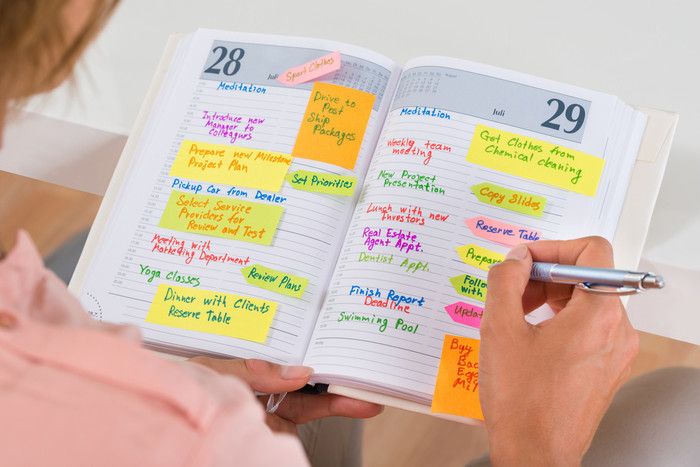 28
Juli
Sport Clothes
Meditation
Drive to
Post
Ship
Packages
Introduce new
Manager to
Colleagues
Prepare new Milestone
Project Plan
Set Priorities
Pickup Car from Dealer
Select Service
Providers for
Review and Test
Meeting with
Marketing Department
Review Plans
Yoga Classes
Dinner with Clients
Reserve Table
Juli
29
Meditation
Got Clothes from
Chemical cleaning
Weekly team
meeting
New Project
Presentation
Copy Slides
Lunch with new
Investors
Reserve Table
Real Estate
Agent Appt.
Dentist Appt.
Prepare
Follow
with
Finish Report
Deadline
Update
Swimming Pool
Buy